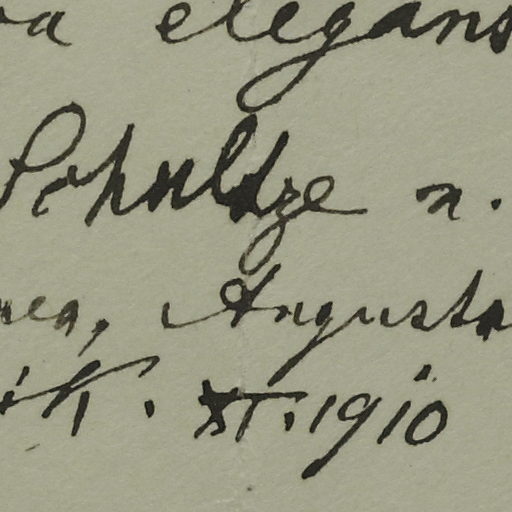 elegans
Schultze n.
Augusta
XI. 1910